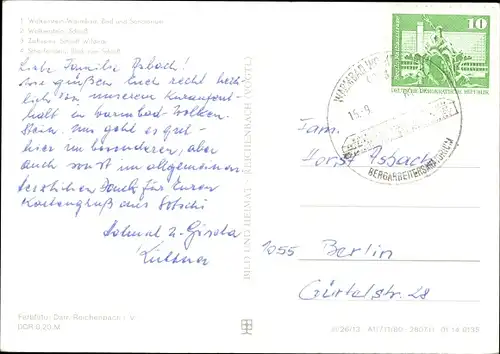 1 Wolkenstein-Warmbad, Bad und Sanatorium
2 Wolkenstein, Schloß
3 Zschopau, Schloß Wildeck
4 Scharfenstein, Blick zum Schloß
Liebe Familie Asbach!
Wir grüßen Euch recht herz-
lich von unserem Kuraufent-
halt in Warmbad-Wolken-
stein. Uns geht es gut -
hier im besonderen, aber
auch sonst im allgemeinen.
Herzlichen Dank für Euren
Kartengruß aus Sotschi
Helmut u. Gisela
Küttner
Fotofoto: Darr, Reichenbach i. V.
DDR 0,20 M
BILD UND HEIMAT REICHENBACH (VOGTL)
10
DEUTSCHE DEMOKRATISCHE REPUBLIK
15.9.
BERGARBEITERSANATORIUM
Fam.
Horst Asbach
1055 Berlin
Gürtelstr. 28
A1/713/80 01 14 0135